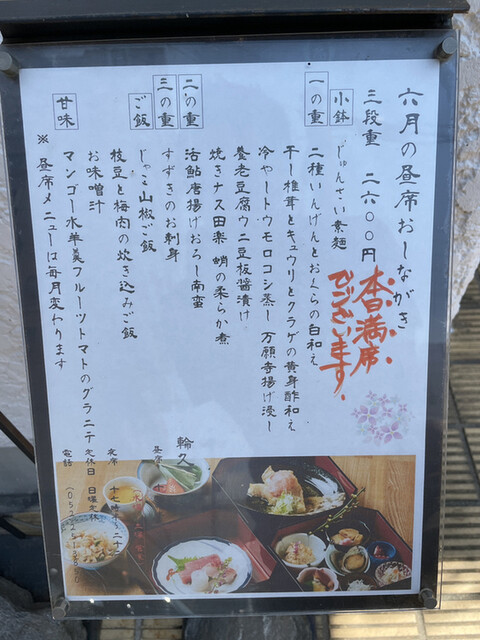 六月の昼席おしながき
三段重 二六〇〇円
本日満席
でございます。
小鉢 じゅんさい素麺
一の重 二種いんげんとおくらの白和え
干し椎茸とキュウリとクラゲの黄身酢和え
冷やしトウモロコシ蒸し 万願寺揚げ浸し
養老豆腐ウニ豆板醤漬け
焼きナス田楽 蛸の柔らか煮
二の重 活鮎唐揚げおろし南蛮
三の重 すずきのお刺身
ご飯 じゃこ山椒ご飯
枝豆と梅肉の炊き込みご飯
お味噌汁
甘味 マンゴー水羊羹フルーツトマトのグラニテ
※ 昼席メニューは毎月変わります
輪久
昼席
夜席
定休日 日曜定休
電話